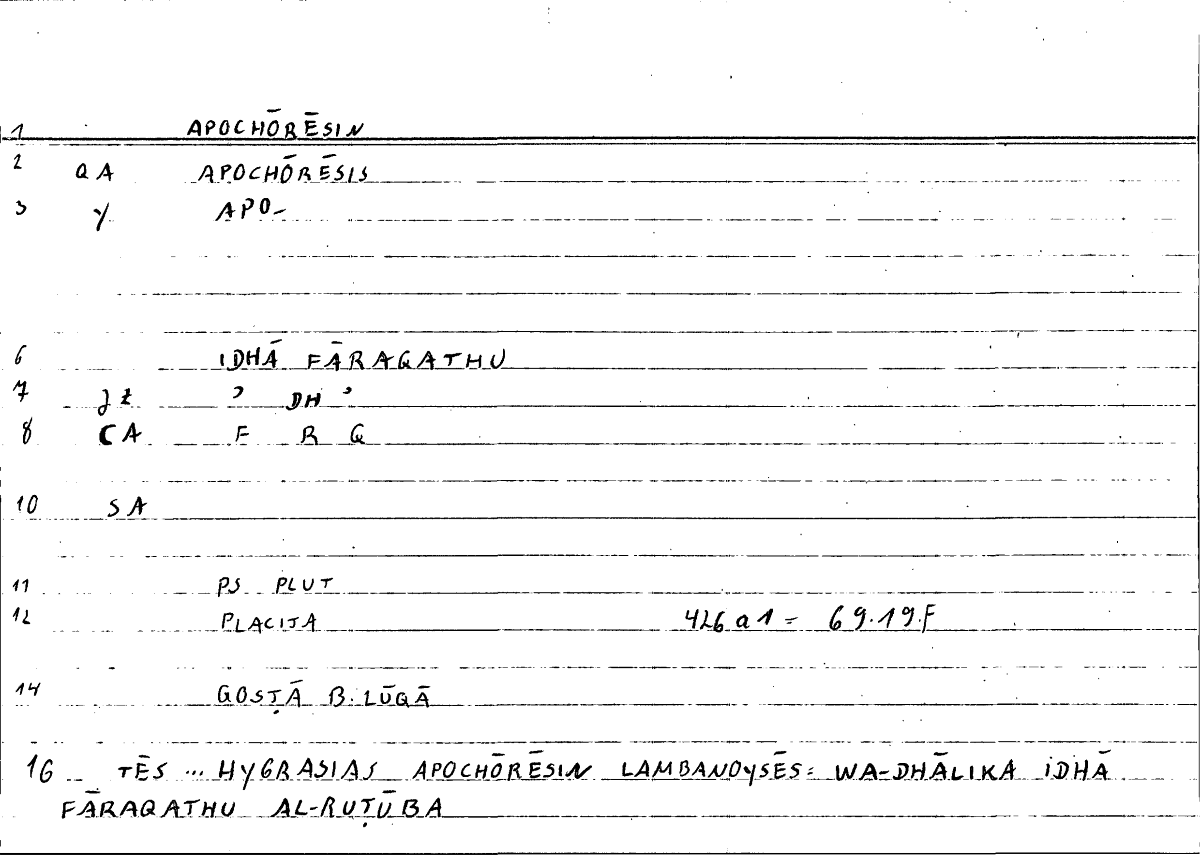 1 APOCHŌRĒSIN
2 QA APOCHŌRĒSIS
3 Y APO-
6 IDHĀ FĀRAQATHU
7 JZ ʾ DH ʾ
8 CA F R Q
10 SA
11 PS PLUT
12 PLACITA 426a1 = 69.19.F
14 QOSṬĀ B. LŪQĀ
16 TĒS ... HYGRASIAS APOCHŌRĒSIN LAMBANOYSĒS: WA-DHĀLIKA IDHĀ
FĀRAQATHU AL-RUṬŪBA